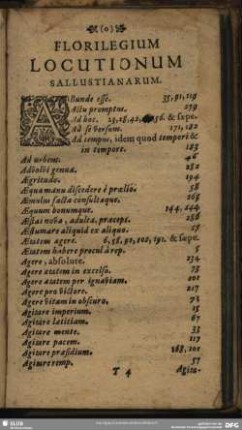 (o)
FLORILEGIUM
LOCUTIONUM
SALLUSTIANARUM.
Abunde esse. 35, 91, 119
Actu promptus. 279
Ad hoc. & sæpe.
Ad se versum. 171, 182
Ad tempus, idem quod tempori &
in tempore. 183
Ad urbem. 46
Adbolvi genua.
Ægritudo. 194
Æqua manu discedere è prælio. 58
Æmulus facta consultaque. 268
Æquum bonumque. 244, 264
Æstas nova, adulta, præceps.
Æstumare aliquid ex aliquo. 67
Ætatem agere. 6, & sæpe.
Ætatem habere procul à rep. 5
Agere, absolute. 234
Agere ætatem in excelso. 78
Agere ætatem per ignaviam. 201
Agere pro victore. 217
Agere vitam in obscuro. 72
Agitare imperium. 15
Agitare lætitiam. 67
Agitare mente. 33
Agitare pacem. 117
Agitare præsidium. 168, 202
Agitare temp. 57
T 4 Agita-
SLUB